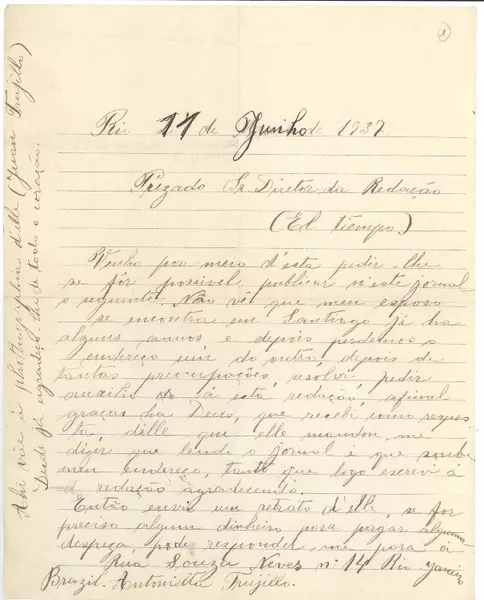 1
Rio 11 de Junho de 1937
Prezado Sr Director da Redação
(El Tiempo)
Venho por meio d'esta pedir-lhe
se fôr possivel publicar n'este jornal
o seguinte. Não vê que meu esposo
se encontra em Santiago já ha
alguns annos, e depois perdemos o
endereço um do outro, depois de
tantas preocupações, resolvi, pedir
auxilio a esta redação, afinal
graças ha Deus, que recebi uma respos
ta, délle que elle mandou me
dizer que lendo o jornal é que soube
meu endereço, tanto que logo escrevi á
a redação agradecendo.
Então envio um retrato d'élle, se for
preciso algum dinheiro para pagar alguma
despeza, pode responder-me para á
Rua Souza Neves nº 14 Rio Janeiro
Brazil. Antonietta Trujillo.
Ahi vae á photographia d'elle (Juan Trujillo)
Desde já agradeço-lhe de todo o coração.